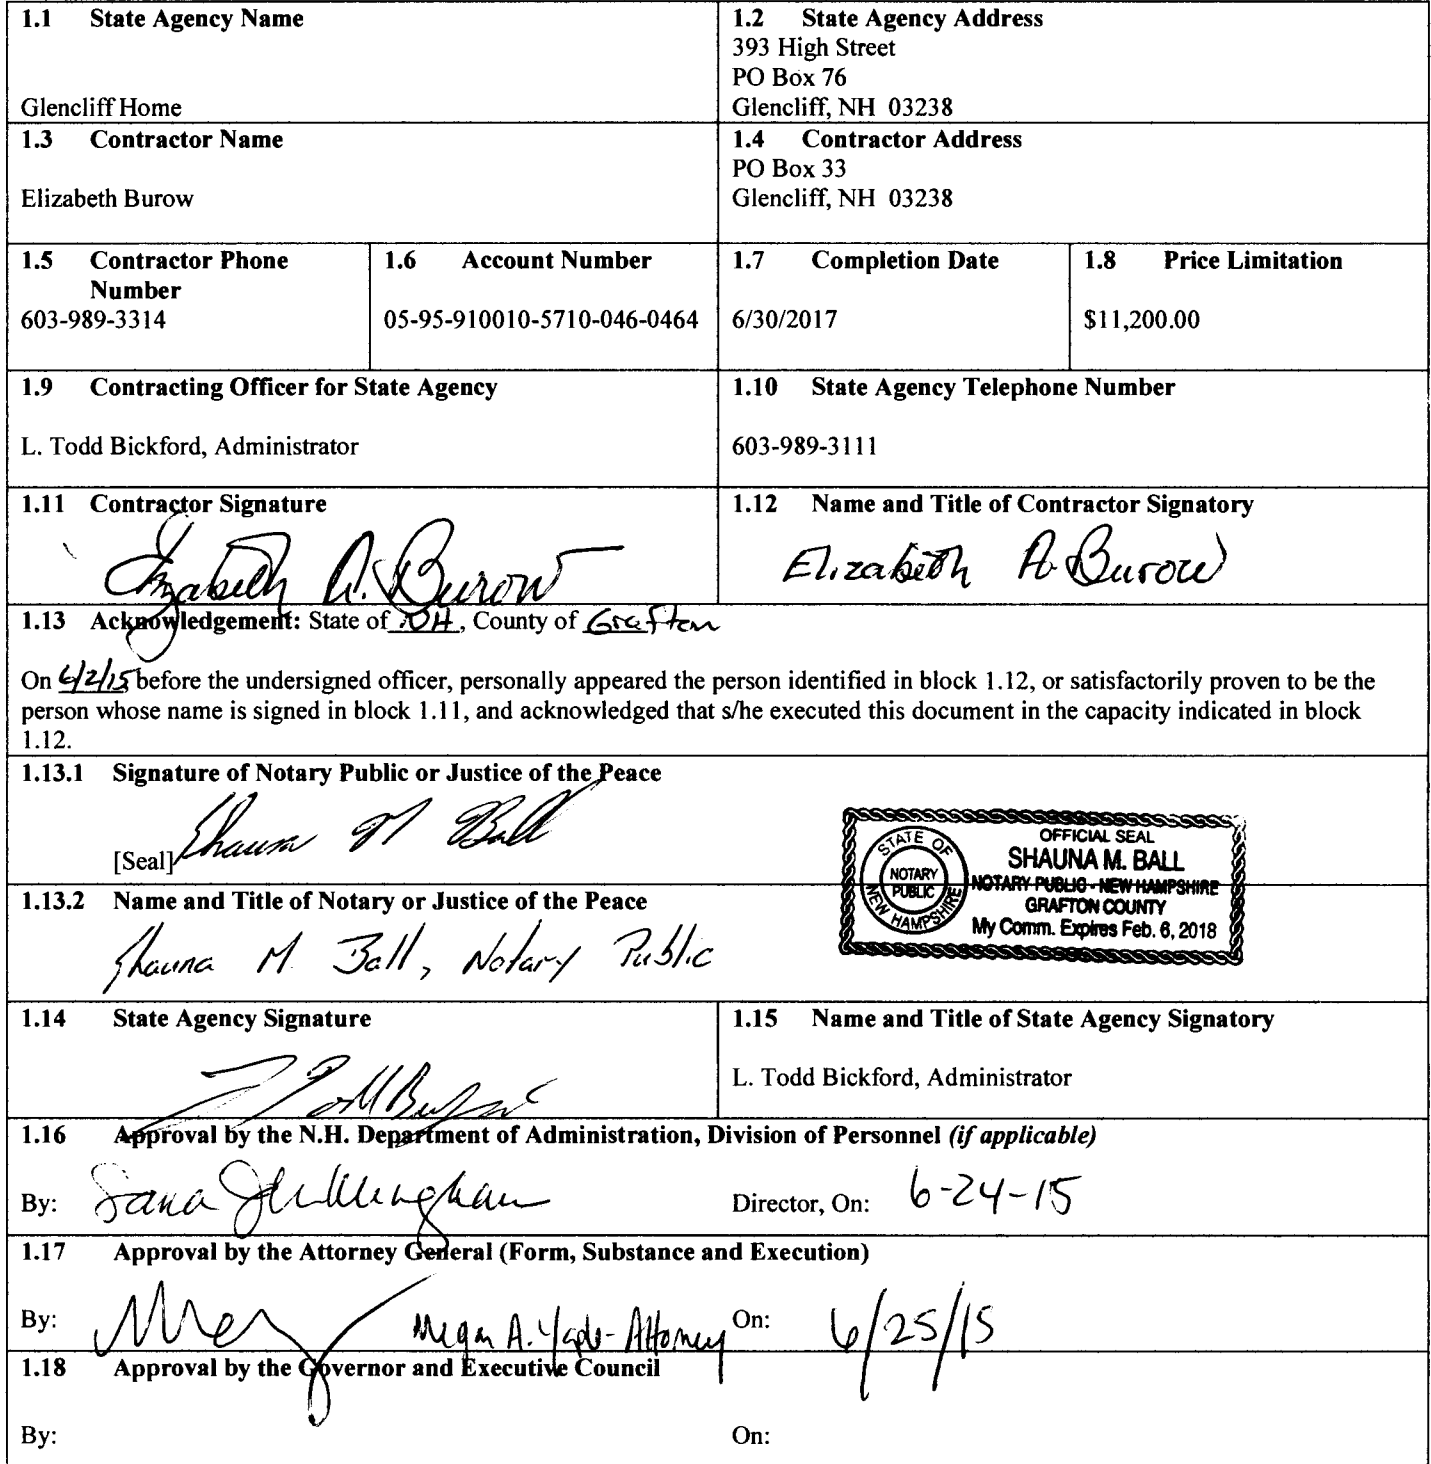 1.1 State Agency Name
Glencliff Home
1.2 State Agency Address
393 High Street
PO Box 76
Glencliff, NH 03238
1.3 Contractor Name
Elizabeth Burow
1.4 Contractor Address
PO Box 33
Glencliff, NH 03238
1.5 Contractor Phone
Number
603-989-3314
1.6 Account Number
05-95-910010-5710-046-0464
1.7 Completion Date
6/30/2017
1.8 Price Limitation
$11,200.00
1.9 Contracting Officer for State Agency
L. Todd Bickford, Administrator
1.10 State Agency Telephone Number
603-989-3111
1.11 Contractor Signature
Elizabeth A. Burow
1.12 Name and Title of Contractor Signatory
Elizabeth A. Burow
1.13 Acknowledgement: State of NH, County of Grafton
On 6/2/15 before the undersigned officer, personally appeared the person identified in block 1.12, or satisfactorily proven to be the
person whose name is signed in block 1.11, and acknowledged that s/he executed this document in the capacity indicated in block
1.12.
1.13.1 Signature of Notary Public or Justice of the Peace
Shauna M Ball
[Seal]
STATE OF NEW HAMPSHIRE
NOTARY
PUBLIC
OFFICIAL SEAL
SHAUNA M. BALL
NOTARY PUBLIC - NEW HAMPSHIRE
GRAFTON COUNTY
My Comm. Expires Feb. 6, 2018
1.13.2 Name and Title of Notary or Justice of the Peace
Shauna M. Ball, Notary Public
1.14 State Agency Signature
1.15 Name and Title of State Agency Signatory
L. Todd Bickford, Administrator
1.16 Approval by the N.H. Department of Administration, Division of Personnel (if applicable)
By: Director, On: 6-24-15
1.17 Approval by the Attorney General (Form, Substance and Execution)
By: Megan A. Attorney On: 6/25/15
1.18 Approval by the Governor and Executive Council
By: On: